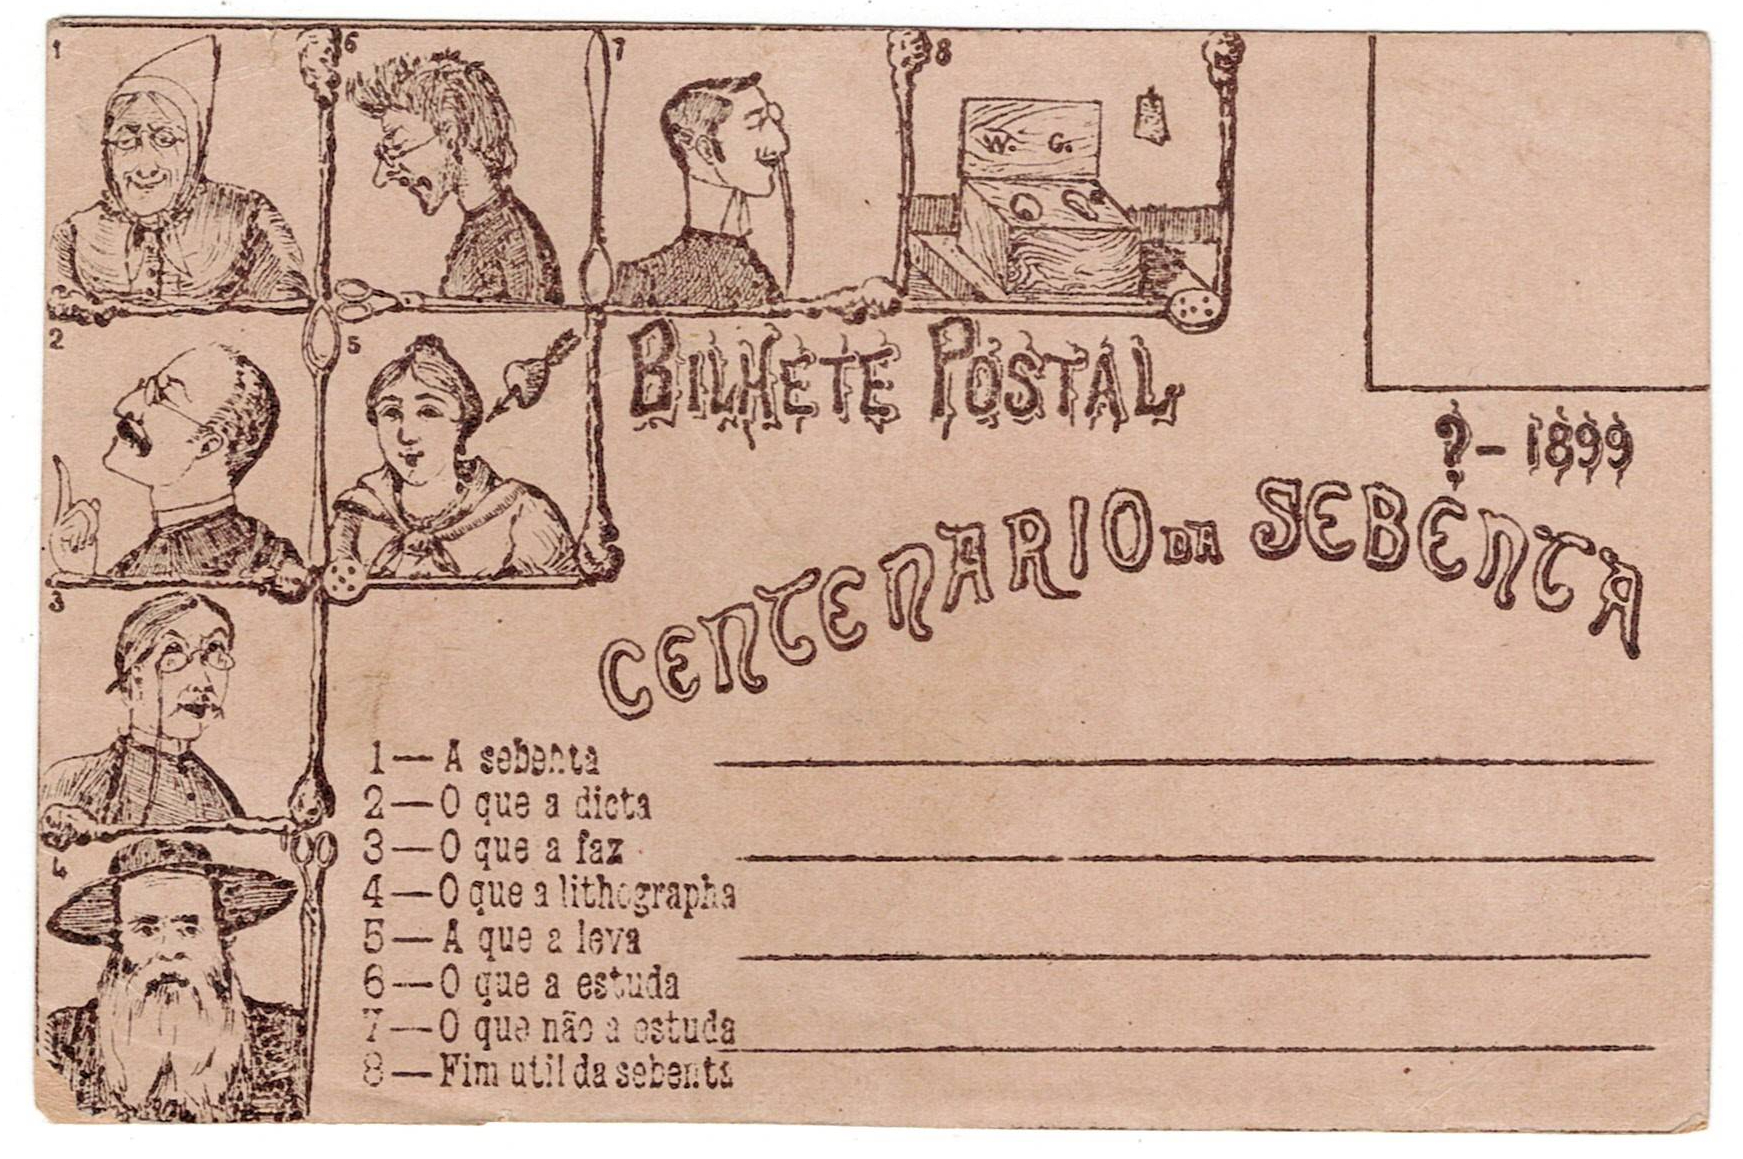 1
6
7
8
W. G.
2
5
BILHETE POSTAL
?-1899
CENTENARIO DA SEBENTA
3
4
1—A sebenta
2—O que a dicta
3—O que a faz
4—O que a lithographa
5—A que a leva
6—O que a estuda
7—O que não a estuda
8—Fim util da sebenta